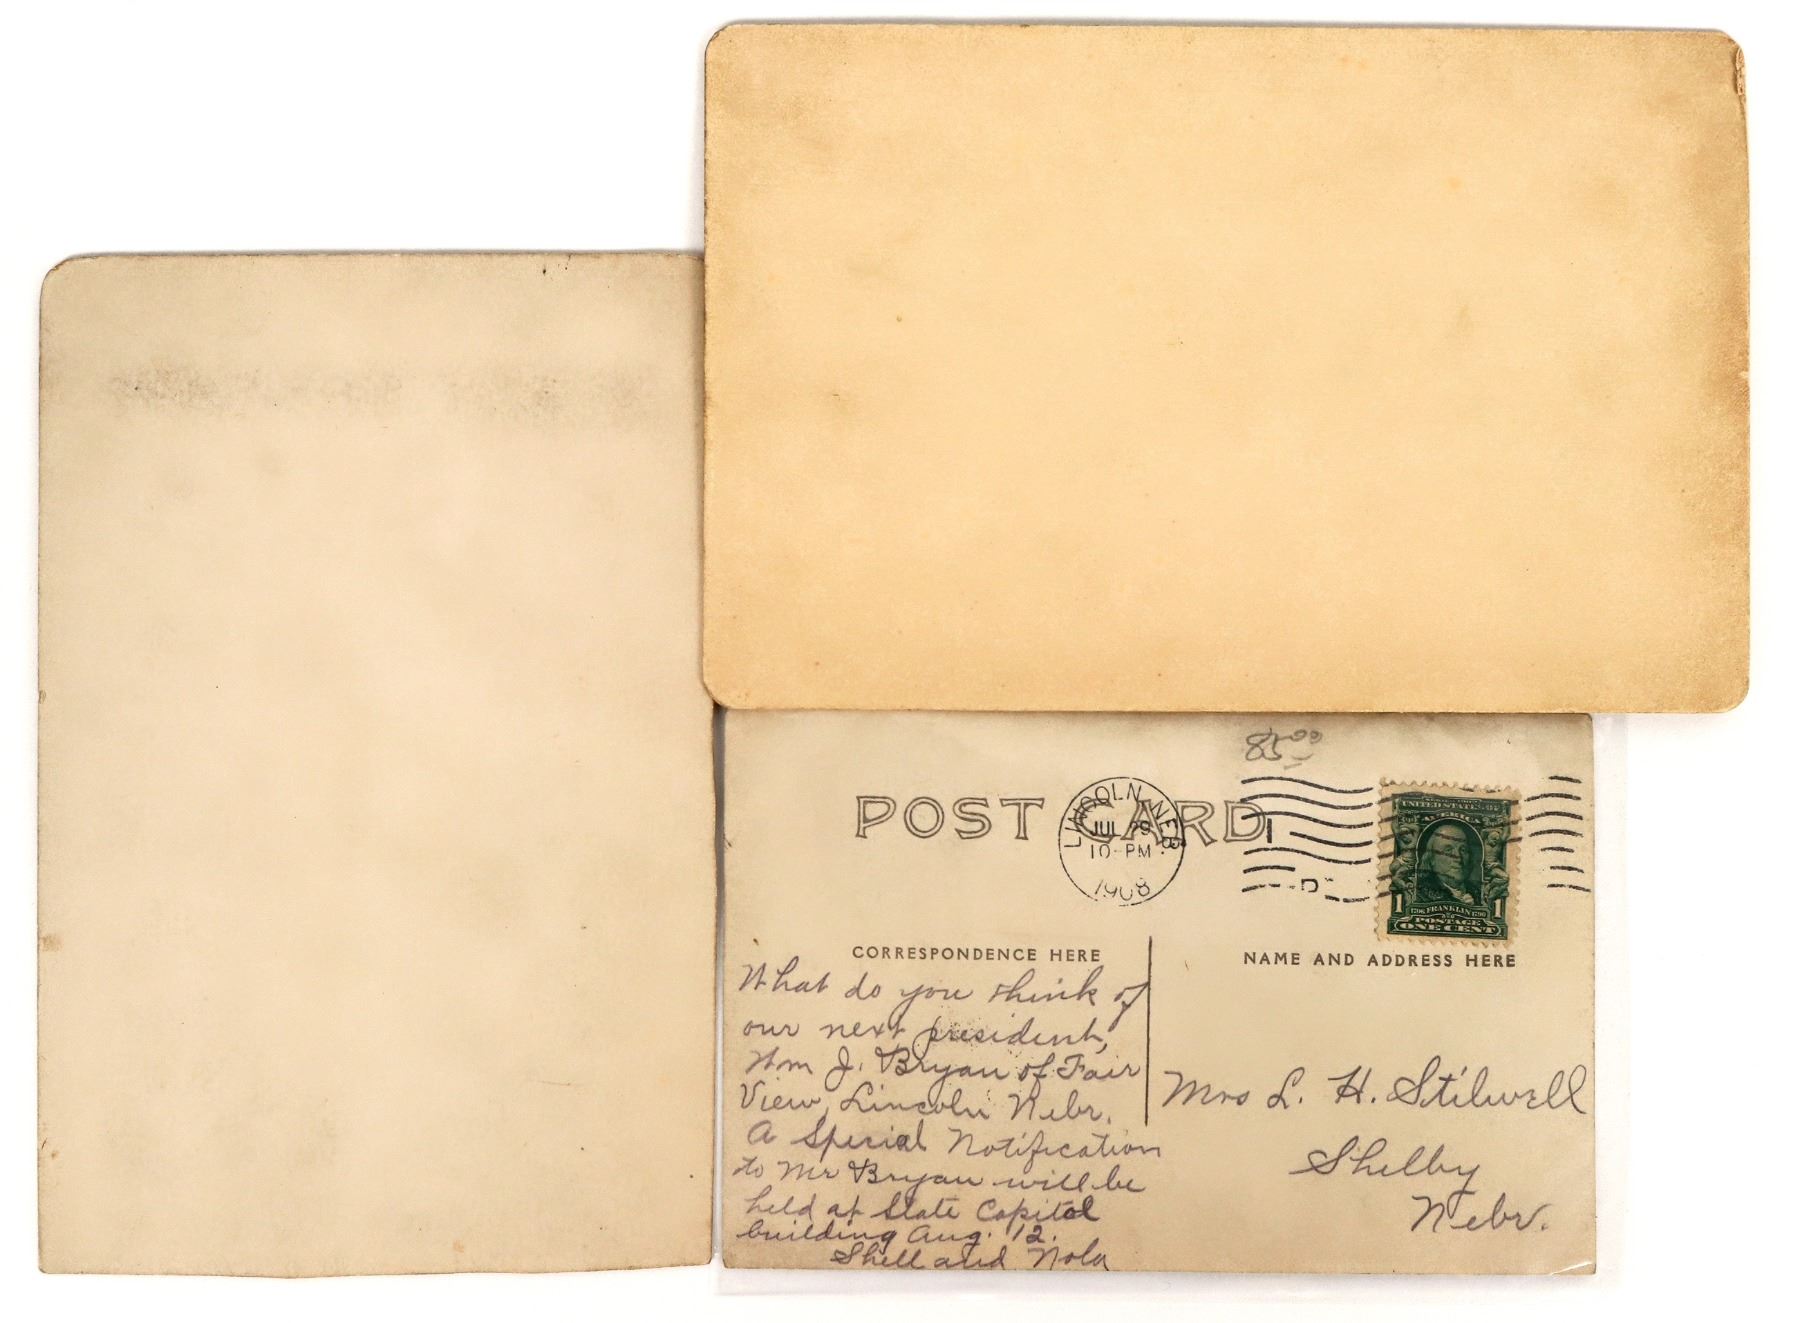 85.00
POST CARD
LINCOLN, NEBR.
JUL 29
10-PM
1908
1
D
UNITED STATES OF
AMERICA
1 1
1706 FRANKLIN 1790
POSTAGE
ONE CENT
CORRESPONDENCE HERE
What do you think of
our next president,
Wm J. Bryan of Fair
View, Lincoln Nebr.
A Special Notification
to Mr Bryan will be
held at State Capitol
building Aug. 12.
Shell and Nola
NAME AND ADDRESS HERE
Mrs L. H. Stilwell
Shelby
Nebr.